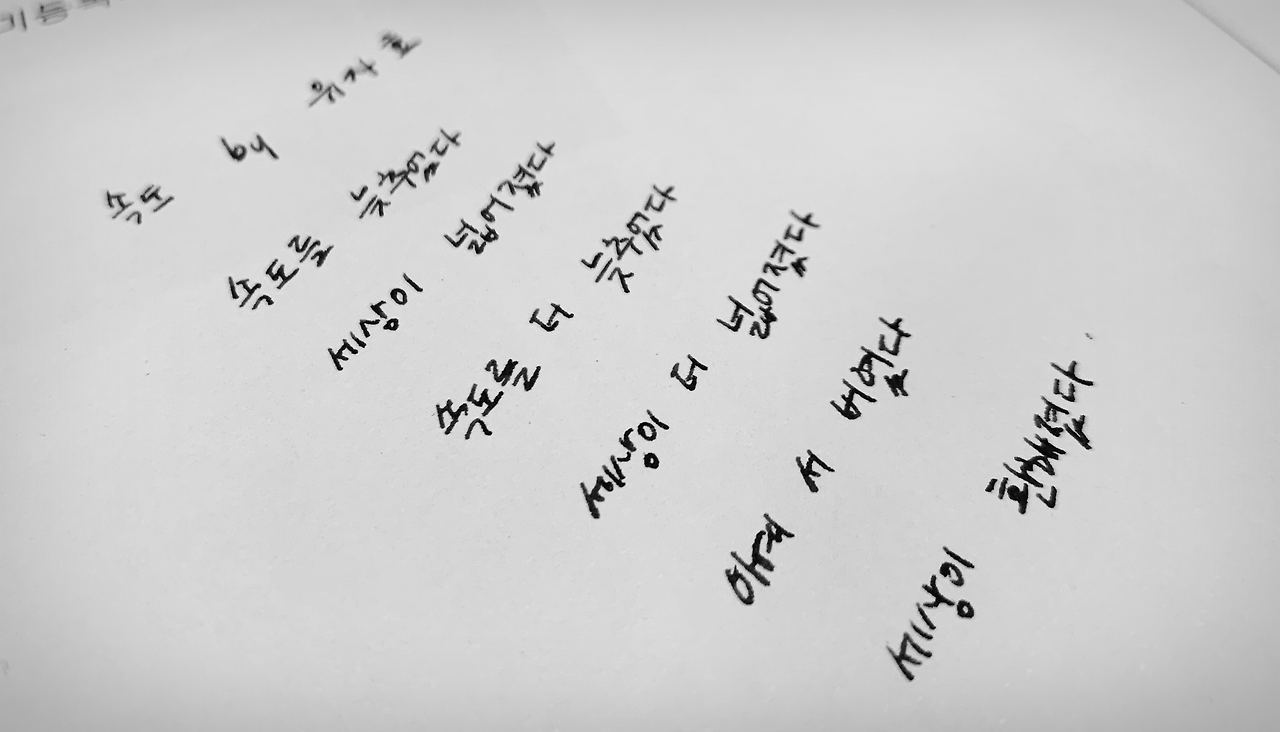 속도 by 유자효
속도를 늦추었다
세상이 넓어졌다
속도를 더 늦추었다
세상이 더 넓어졌다
아예 서 버렸다
세상이 환해졌다